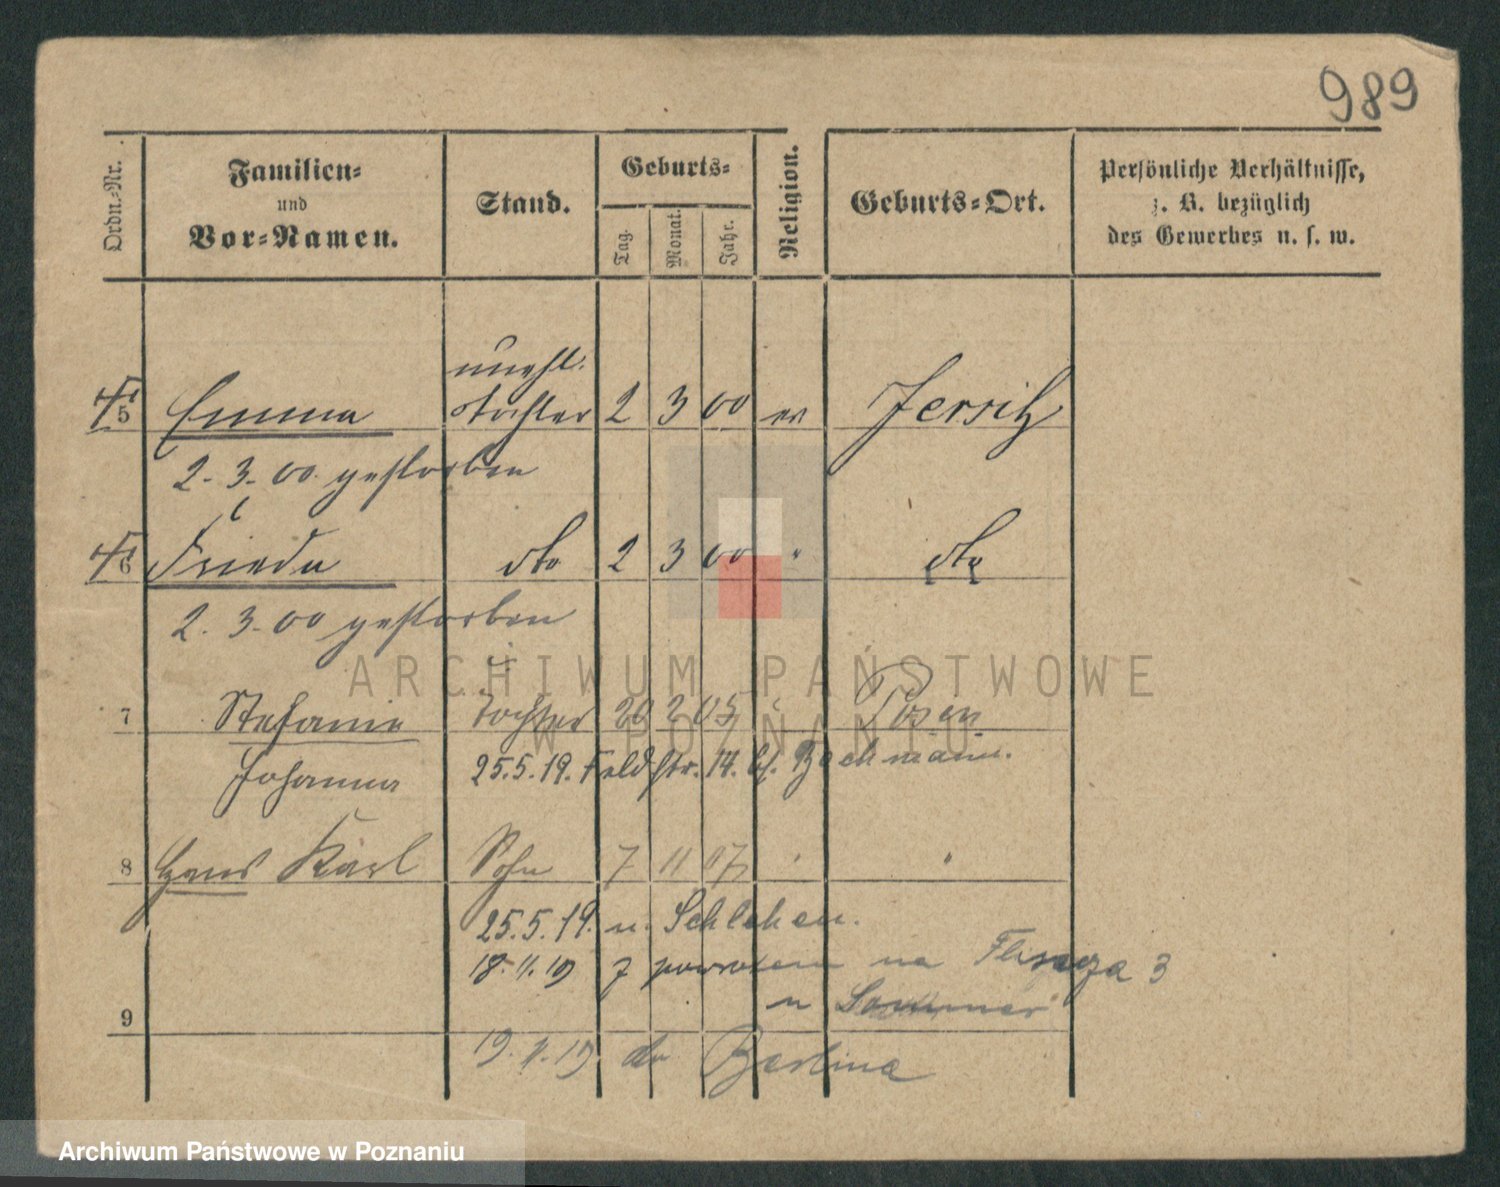 989
Ordn.-Nr. Familien- und Vor-Namen. Stand. Geburts- Tag. Monat. Jahr. Religion. Geburts-Ort. Persönliche Verhältnisse, z. B. bezüglich des Gewerbes u. s. w.
unehl.
5 Emma Tochter 2 3 00 ev Jersitz
2. 3. 00 gestorben
6 Frieda dto 2 3 00 " dto
2. 3. 00 gestorben
ARCHIWUM PAŃSTWOWE
W POZNANIU
7 Stefanie Tochter 20 2 05 " Posen
Johanna 25.5.19. Feldstr. 14. bf. Bachmann.
8 Hans Karl Sohn 7 11 07 " "
25.5.19. u. Schlehen.
18.11.19 z powrotem na 3
u Sommer
9
19. 19 do Berlina
Archiwum Państwowe w Poznaniu